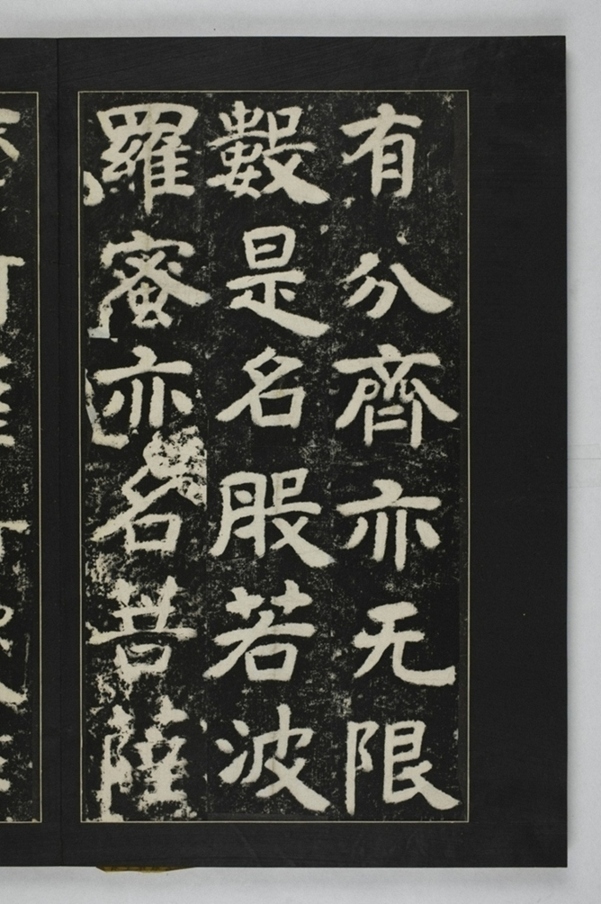 有分齊亦无限
數是名般若波
羅蜜亦名菩薩